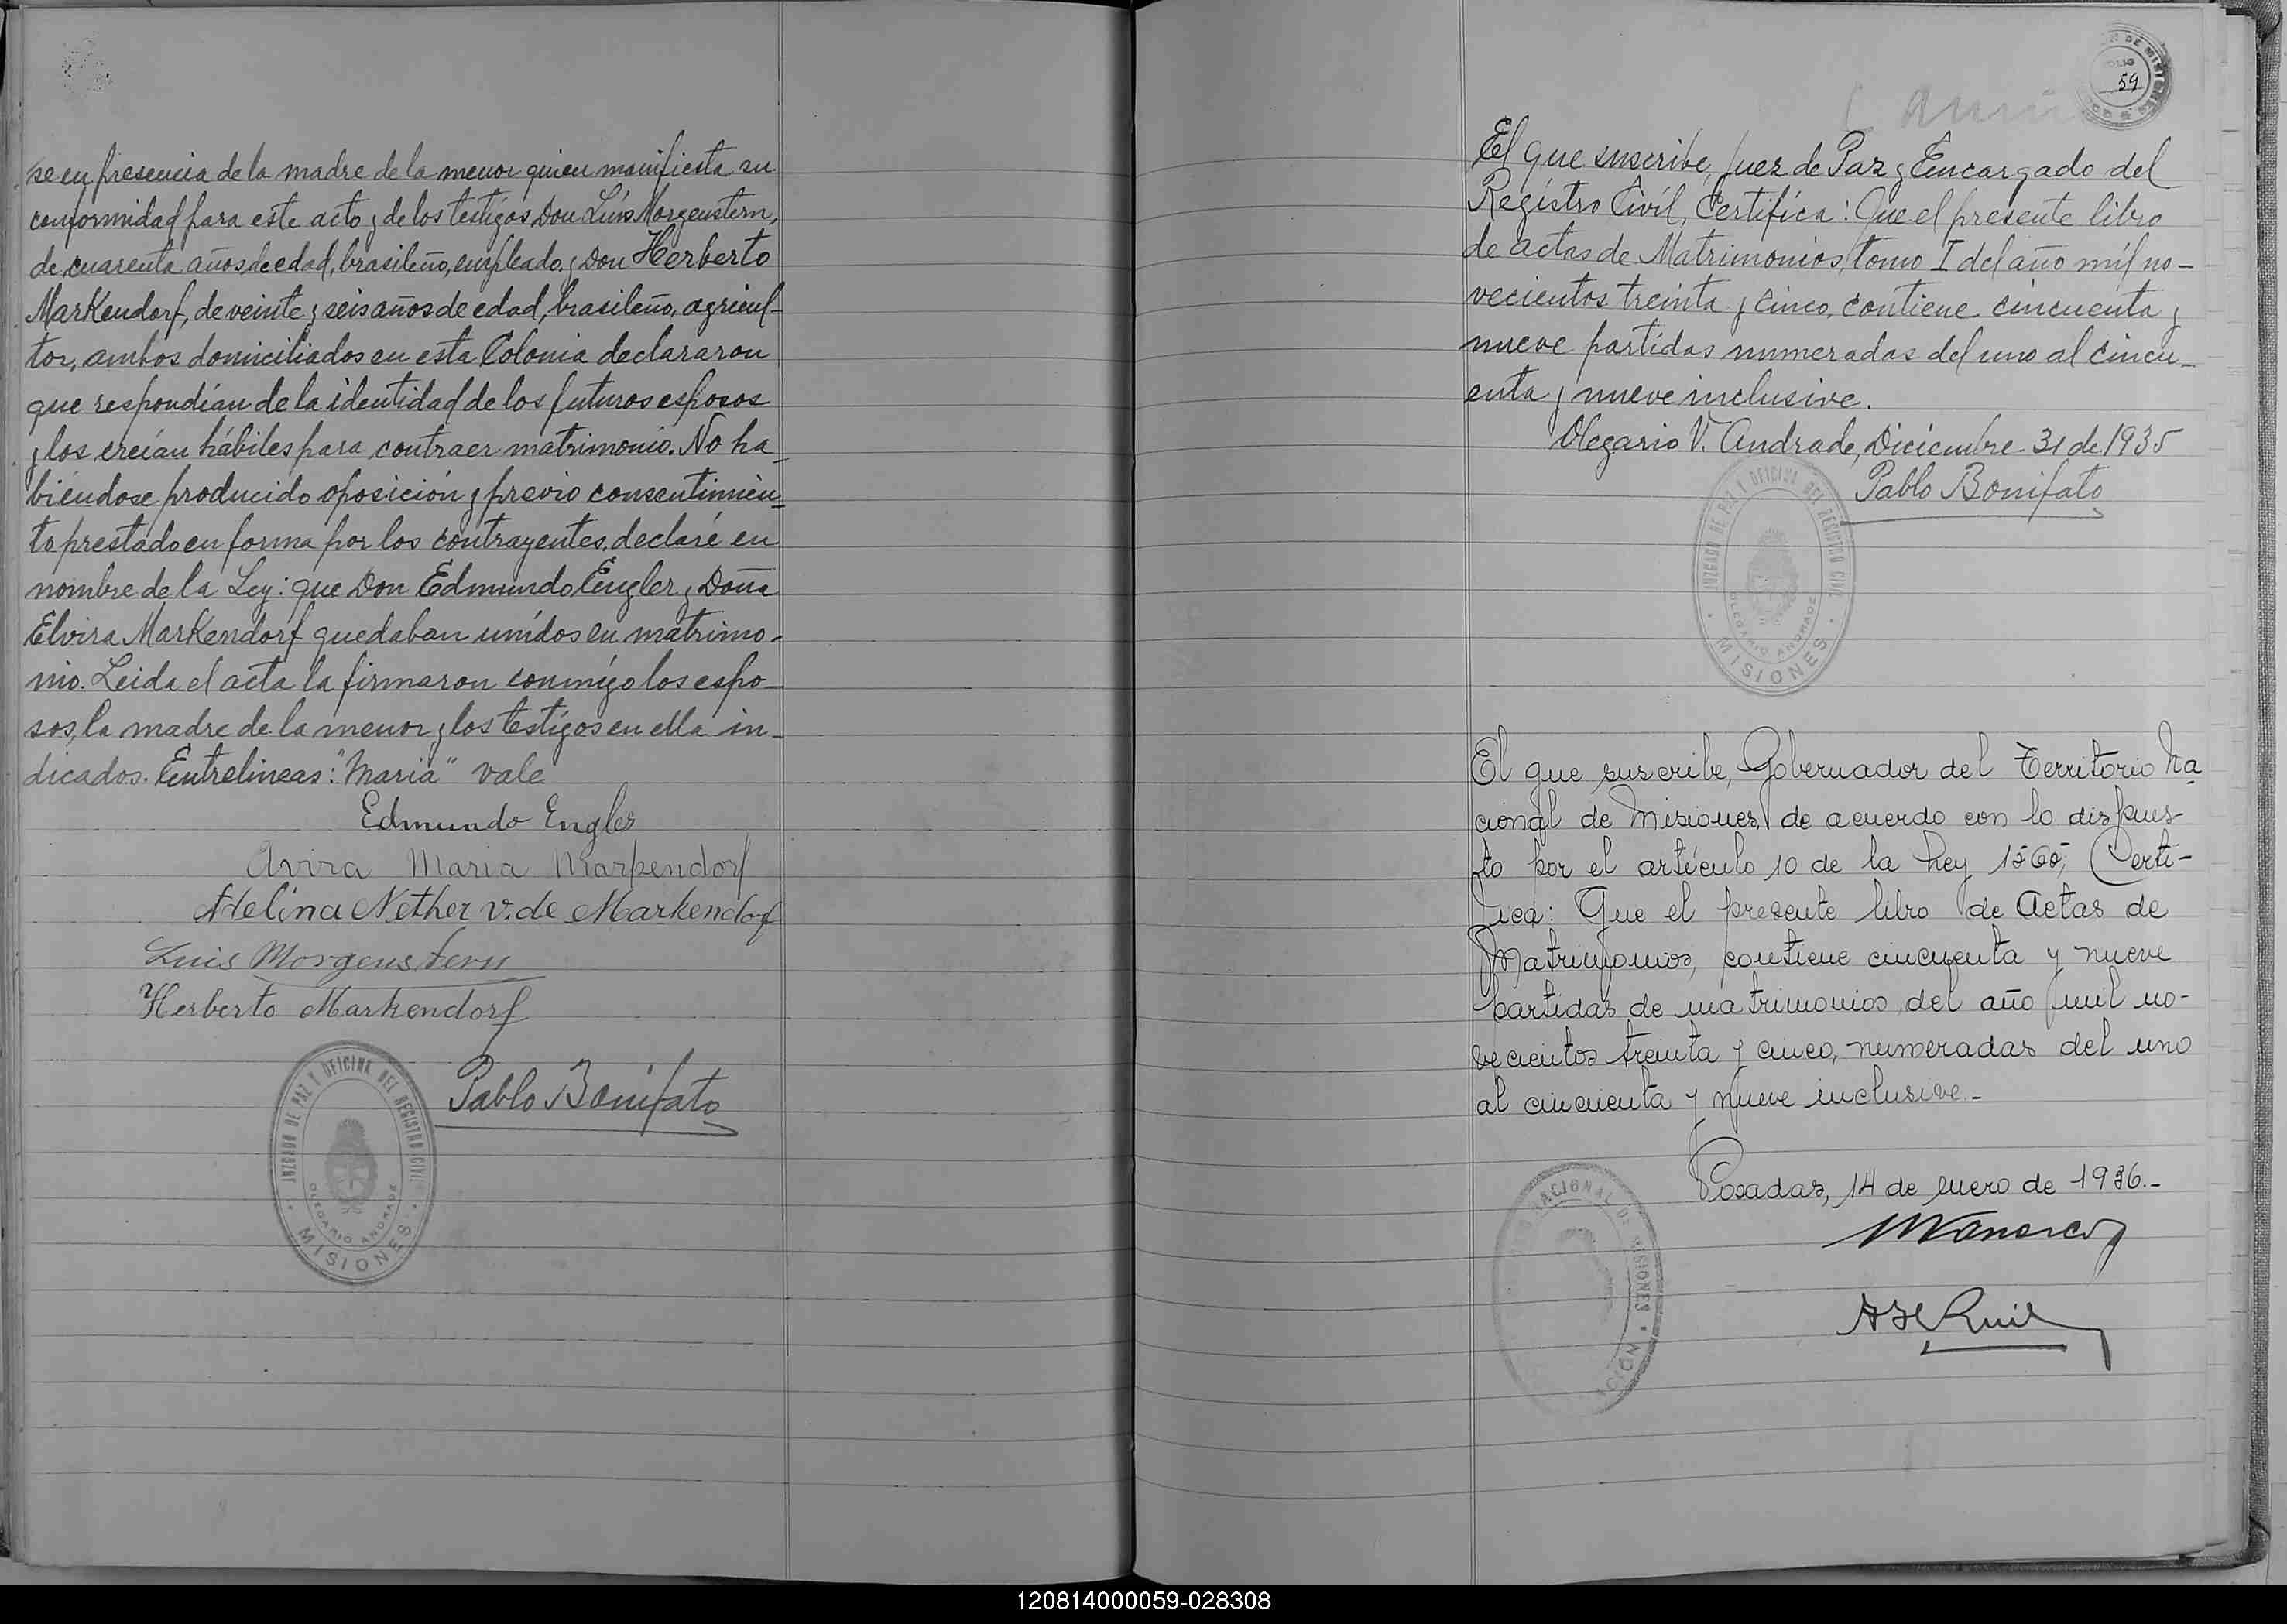 se en presencia de la madre de la menor quien manifiesta su
conformidad para este acto y de los testigos Don Luis Morgenstern,
de cuarenta años de edad, brasileño, empleado, y Don Herberto
Markendorf, de veinte y seis años de edad, brasileño, agricul-
tor, ambos domiciliados en esta Colonia declararon
que respondían de la identidad de los futuros esposos
y los creían hábiles para contraer matrimonio. No ha-
biéndose producido oposición y previo consentimien-
to prestado en forma por los contrayentes, declaré en
nombre de la Ley: que Don Edmundo Engler y Doña
Elvira Markendorf quedaban unidos en matrimo-
nio. Leida el acta la firmaron conmigo los espo-
sos, la madre de la menor y los testigos en ella in-
dicados. Entrelineas: "Maria" vale
Edmundo Engler
Maria Markendorf
Adelina Nether v. de Markendorf
Luis Morgenstern
Herberto Markendorf
Pablo Bonifato
JUZGADO DE PAZ Y OFICINA DEL REGISTRO CIVIL
OLEGARIO ANDRADE
MISIONES
59
El que suscribe, Juez de Paz y Encargado del
Registro Civil, Certifica: Que el presente libro
de actas de Matrimonios, tomo I del año mil no-
vecientos treinta y cinco, contiene cincuenta y
nueve partidas numeradas del uno al cincu-
enta y nueve inclusive.
Olegario V. Andrade, Diciembre 31 de 1935
Pablo Bonifato
JUZGADO DE PAZ Y OFICINA DEL REGISTRO CIVIL
OLEGARIO ANDRADE
MISIONES
El que suscribe, Gobernador del Territorio Na-
cional de Misiones, de acuerdo con lo dispues-
to por el artículo 10 de la Ley 1565, Certi-
fica: Que el presente libro de Actas de
Matrimonios, contiene cincuenta y nueve
partidas de matrimonios del año mil no-
vecientos treinta y cinco, numeradas del uno
al cincuenta y nueve inclusive.-
Posadas, 14 de enero de 1936.-
NACIONAL DE MISIONES
120814000059-028308